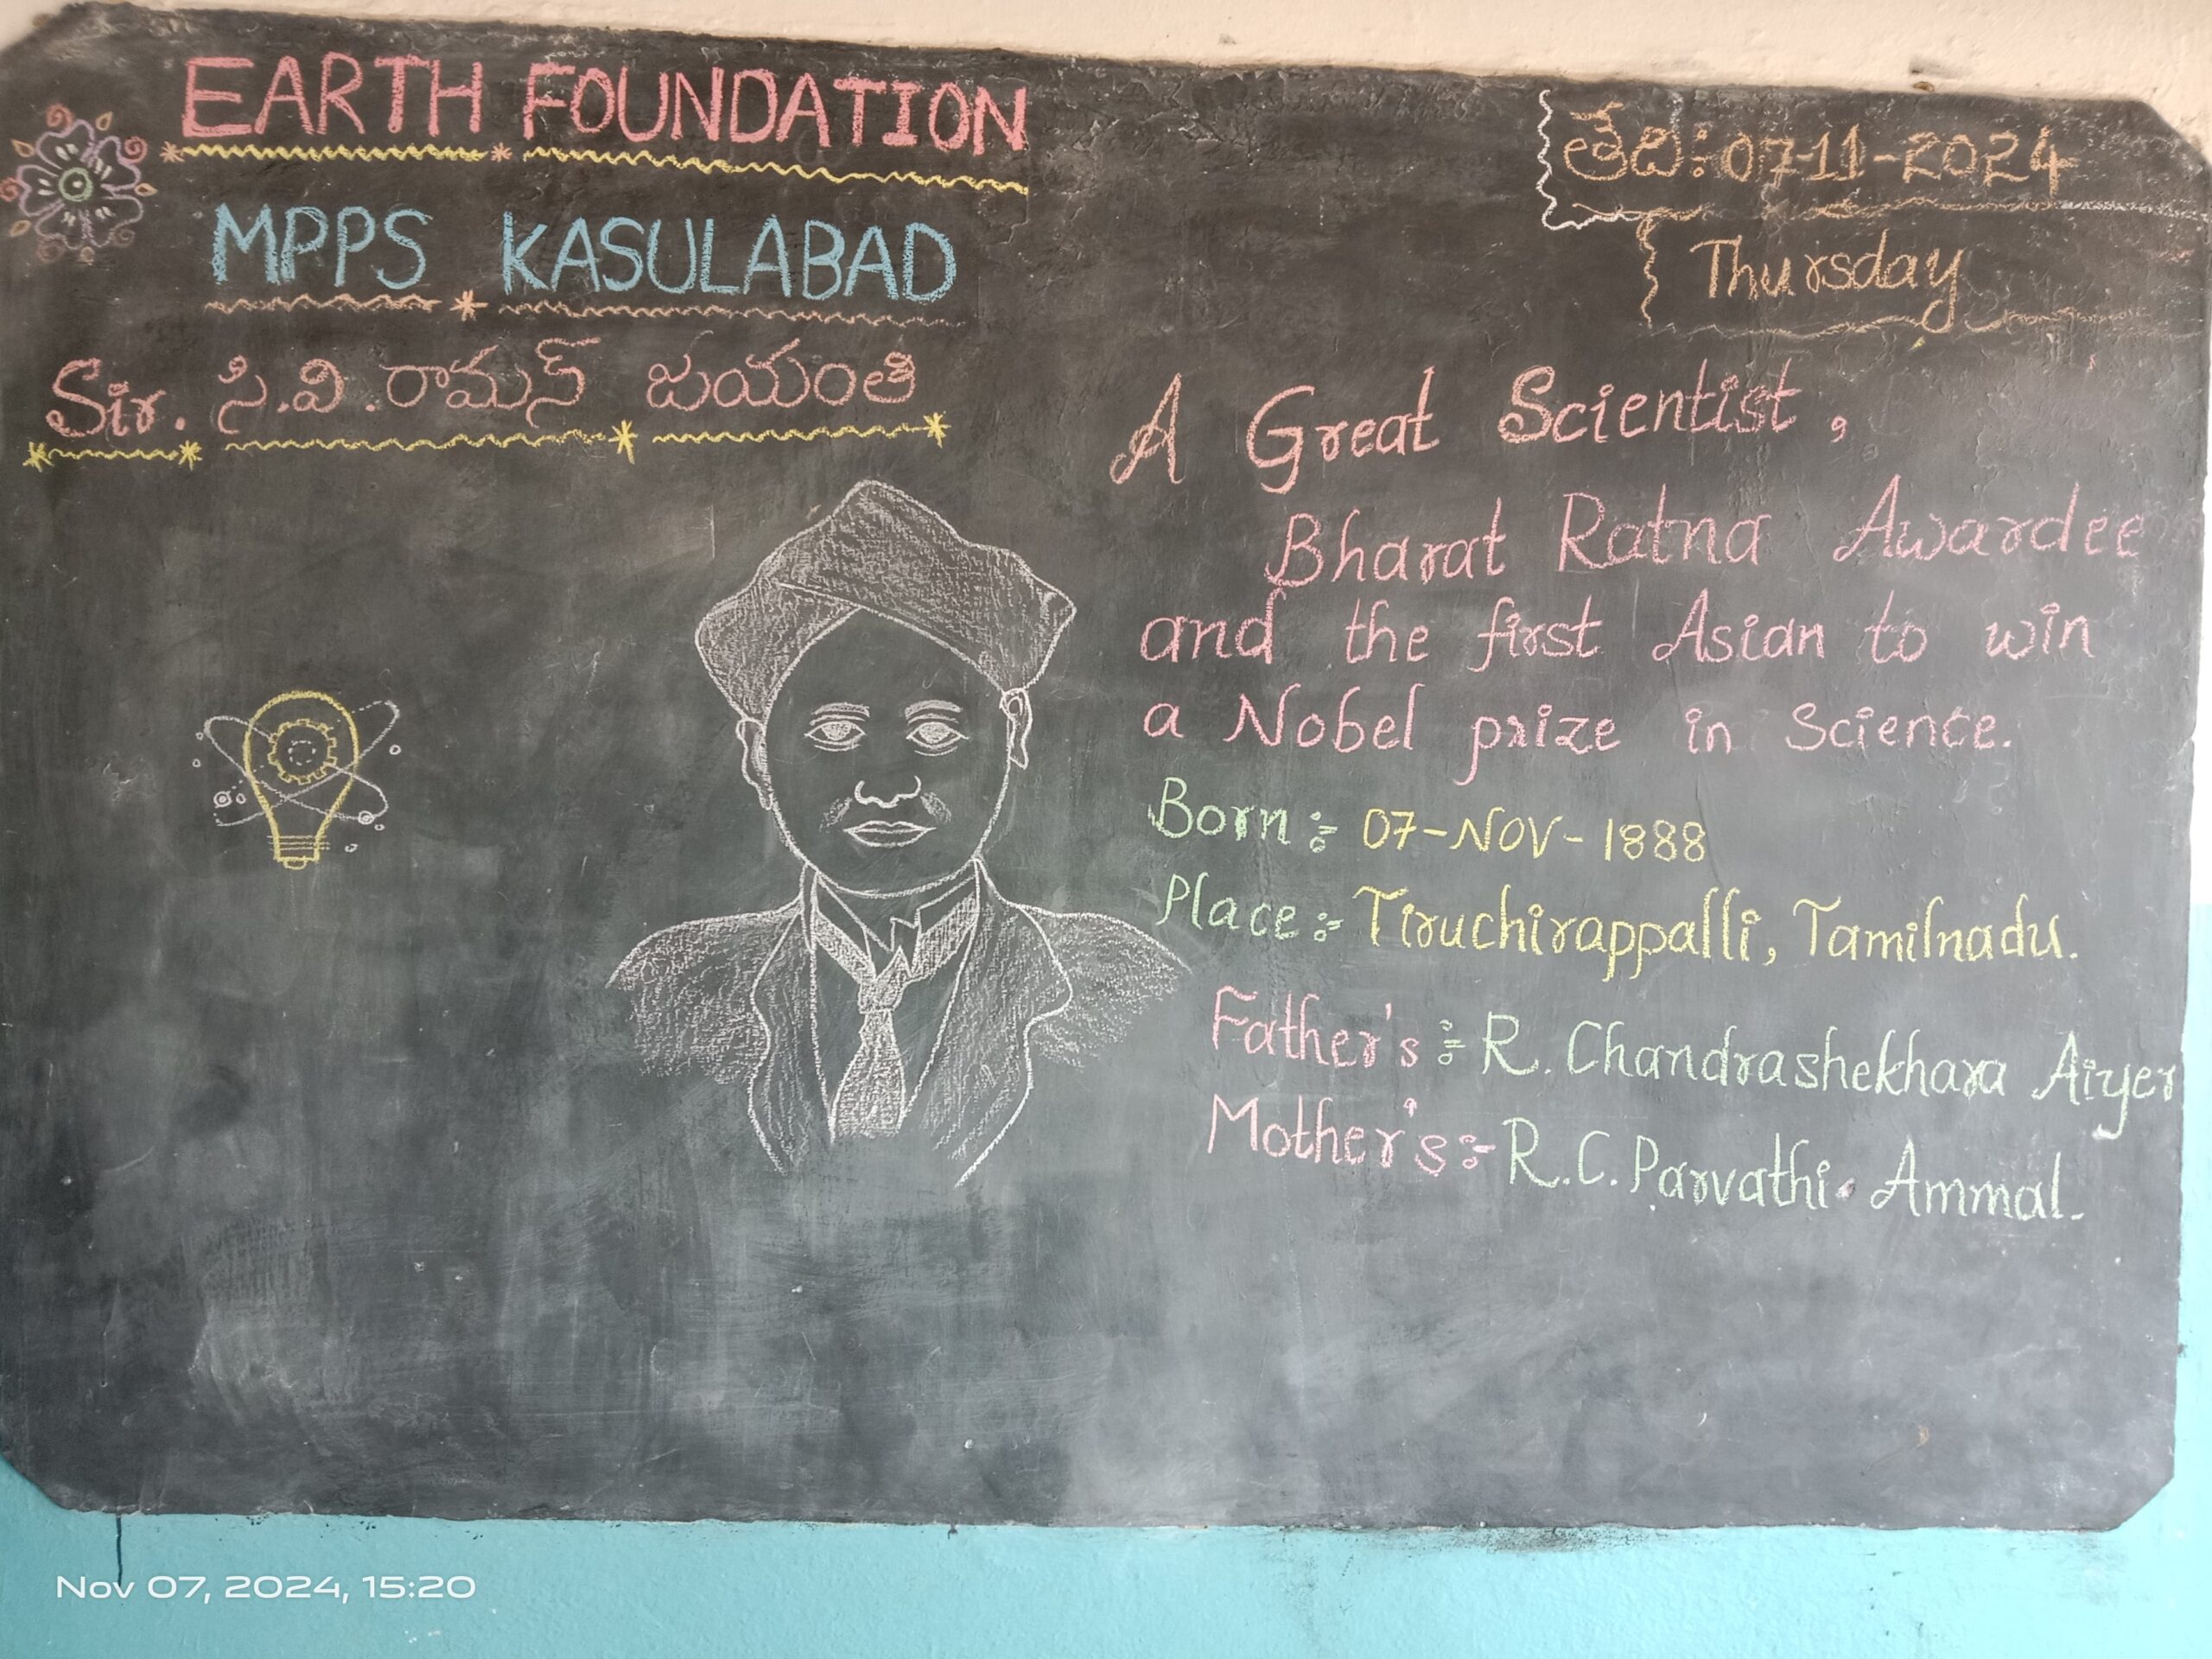 EARTH FOUNDATION
MPPS KASULABAD
Sir. సి.వి.రామన్ జయంతి
తేది: 07-11-2024
Thursday
A Great Scientist,
Bharat Ratna Awardee
and the first Asian to win
a Nobel prize in Science.
Born :- 07-NOV-1888
Place :- Tiruchirappalli, Tamilnadu.
Father's :- R. Chandrashekhara Aiyer
Mother's :- R.C. Parvathi. Ammal.
Nov 07, 2024, 15:20